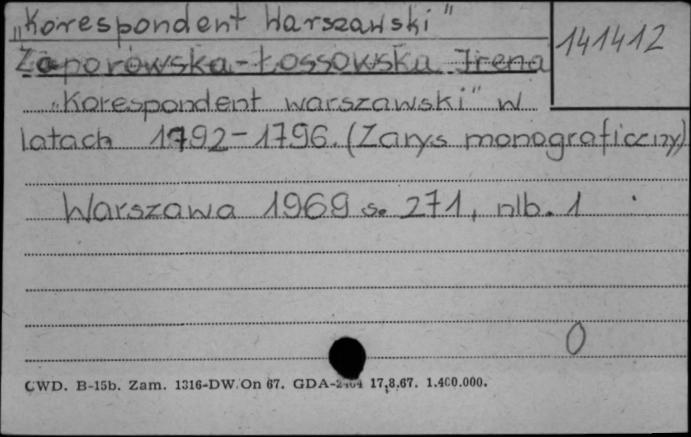 „Korespondent Warszawski"
141412
Zaporowska-Łossowska Irena
„Korespondent warszawski" w
latach 1792-1796. (Zarys monograficzny)
Warszawa 1969 s. 271, nlb. 1
0
CWD. B-15b. Zam. 1316-DW/On 67. GDA- 17,8,67. 1.400.000.